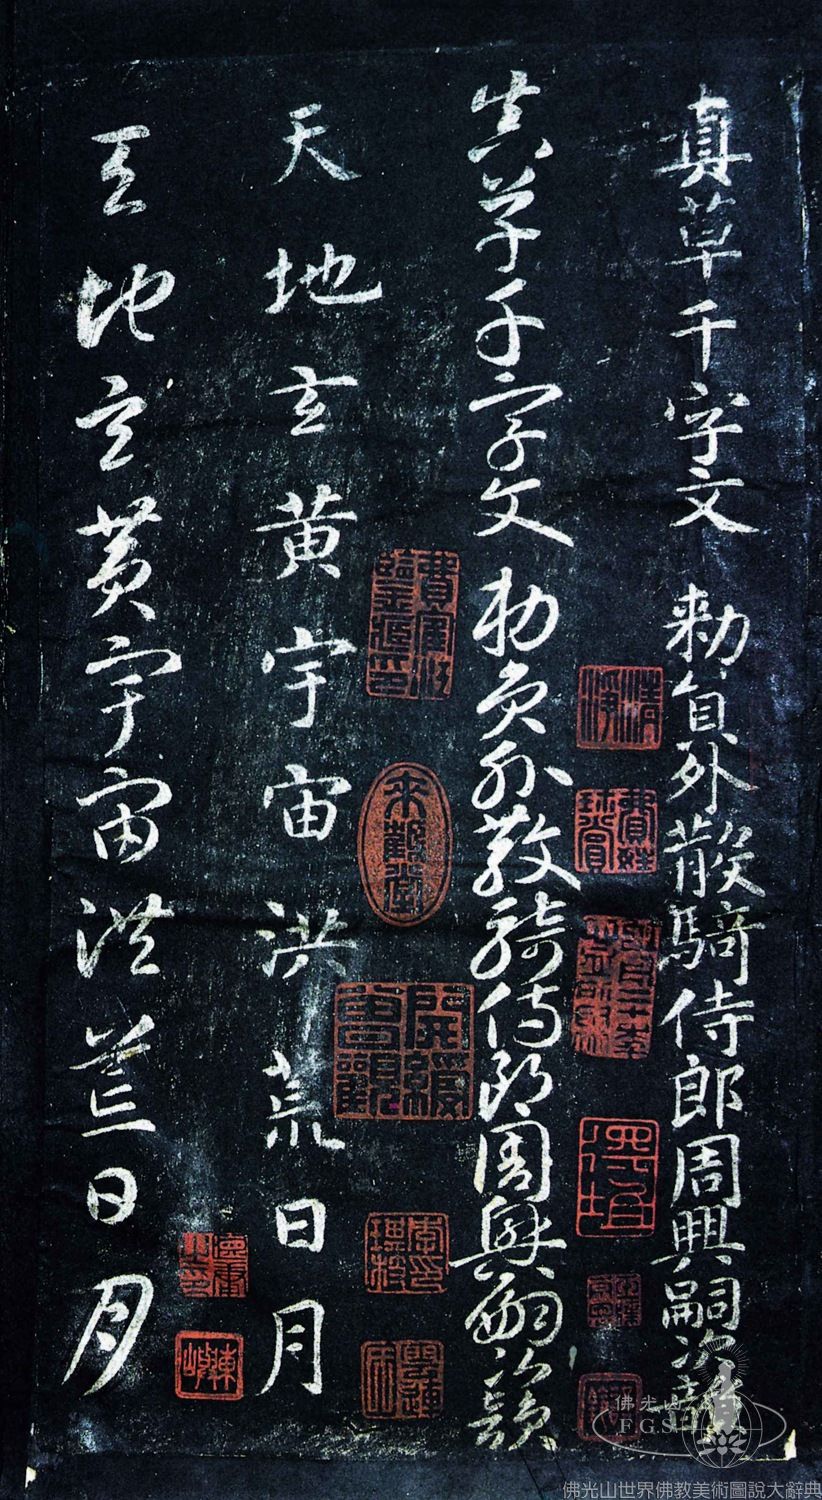 真草千字文 勅員外散騎侍郎周興嗣次韻
真草千字文 勅員外散騎侍郎周興嗣次韻
天地玄黄宇宙洪荒日月
天地玄黄宇宙洪荒日月
來觀堂
佛光山
FGS
佛光山世界佛教美術圖說大辭典